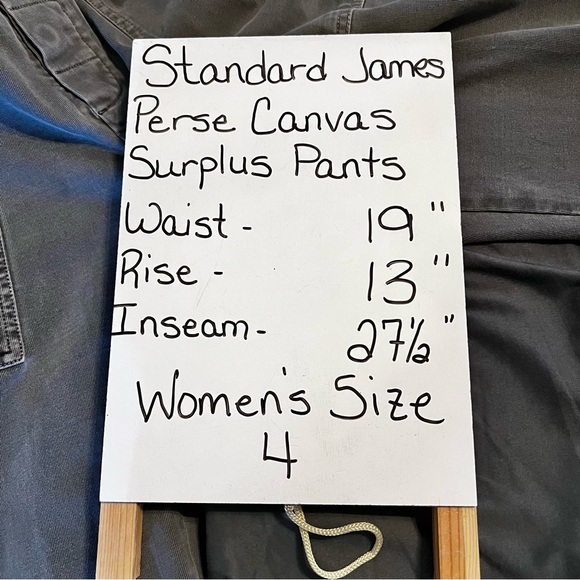 Standard James
Perse Canvas
Surplus Pants
Waist - 19"
Rise - 13"
Inseam - 27½"
Women's Size
4